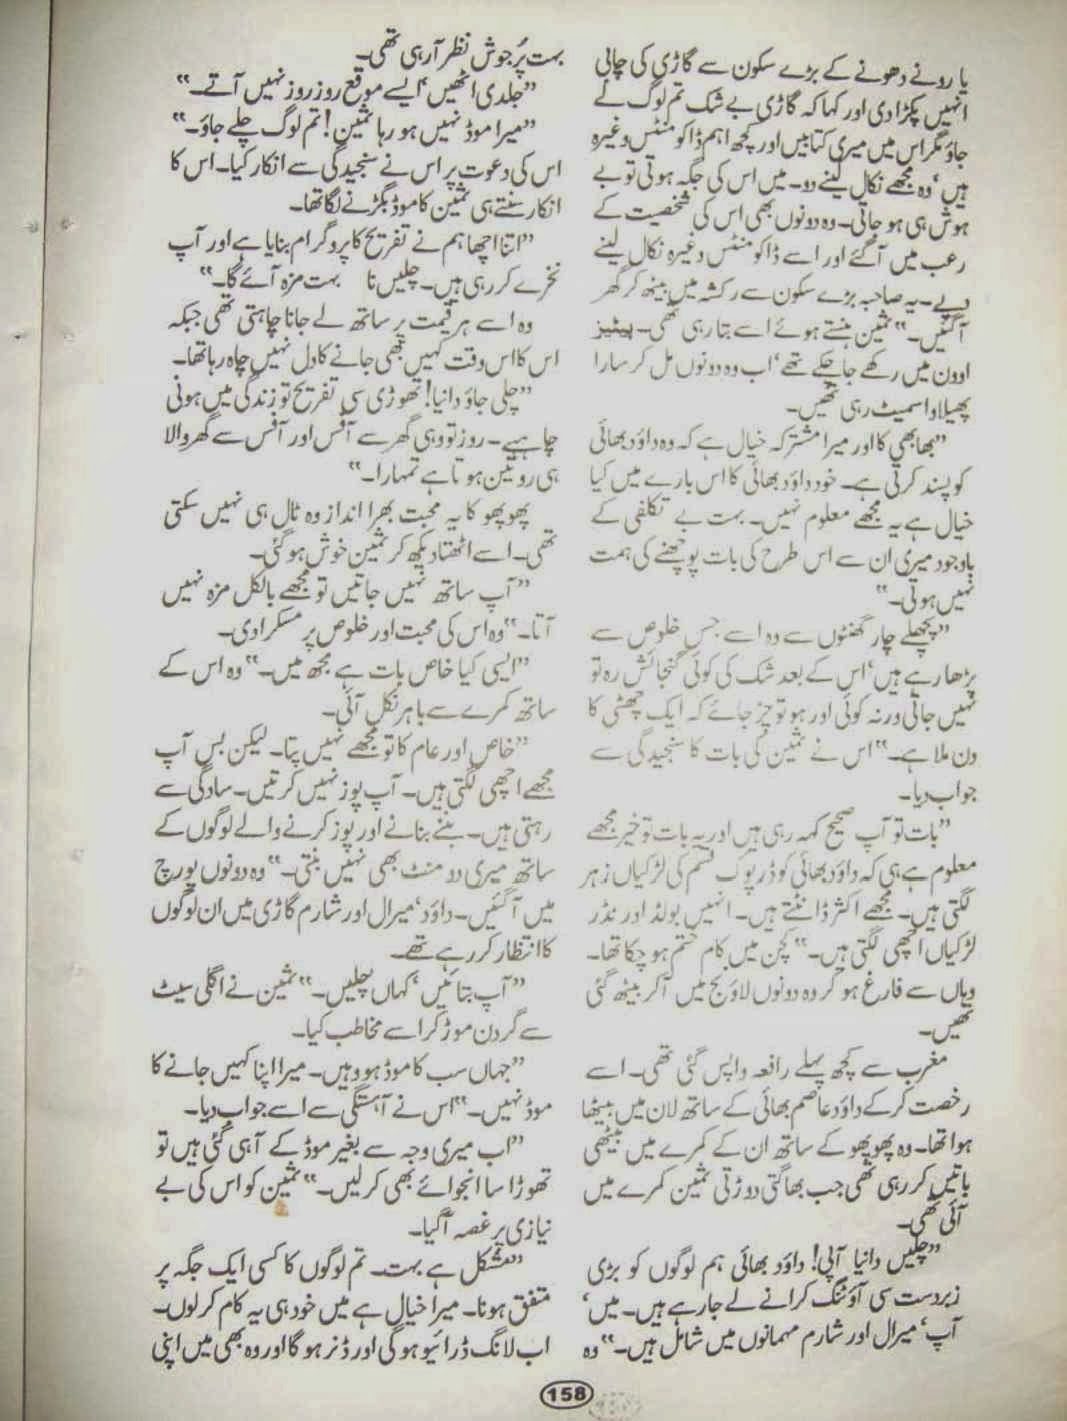 یا رونے دھونے کے بڑے سکون سے گاڑی کی چابی
انہیں پکڑا دی اور کہا کہ گاڑی بے شک تم لوگ لے
جاؤ مگر اس میں میری کتابیں اور کچھ اہم ڈاکومنٹس وغیرہ
ہیں‘ وہ مجھے نکال لینے دو۔ میں اس کی جگہ ہوتی تو بے
ہوش ہی ہو جاتی۔ وہ دونوں بھی اس کی شخصیت کے
رعب میں آ گئے اور اسے ڈاکومنٹس وغیرہ نکال لینے
دیے۔ یہ صاحبہ بڑے سکون سے رکشہ میں بیٹھ کر گھر
آ گئیں۔“ ثمین ہنستے ہوئے اسے بتا رہی تھی۔ پیٹیز
اوون میں رکھے جا چکے تھے‘ اب وہ دونوں مل کر سارا
پھیلاوا سمیٹ رہی تھیں۔
”بھابھی کا اور میرا مشترکہ خیال ہے کہ وہ داؤد بھائی
کو پسند کرتی ہے۔ خود داؤد بھائی کا اس بارے میں کیا
خیال ہے یہ مجھے معلوم نہیں۔ بہت بے تکلفی کے
باوجود میری ان سے اس طرح کی بات پوچھنے کی ہمت
نہیں ہوتی۔“
”پچھلے چار گھنٹوں سے وہ اسے جس خلوص سے
پڑھا رہے ہیں‘ اس کے بعد شک کی کوئی گنجائش رہ تو
نہیں جاتی ورنہ کوئی اور ہو تو چڑ جائے کہ ایک چھٹی کا
دن ملا ہے۔“ اس نے ثمین کی بات کا سنجیدگی سے
جواب دیا۔
”بات تو آپ صحیح کہہ رہی ہیں اور یہ بات تو خیر مجھے
معلوم ہے ہی کہ داؤد بھائی کو ڈرپوک قسم کی لڑکیاں زہر
لگتی ہیں۔ مجھے اکثر ڈانٹتے ہیں۔ انہیں بولڈ اور نڈر
لڑکیاں اچھی لگتی ہیں۔“ کچن میں کام ختم ہو چکا تھا۔
وہاں سے فارغ ہو کر وہ دونوں لاؤنج میں آ کر بیٹھ گئی
تھیں۔
مغرب سے کچھ پہلے رافعہ واپس گئی تھی۔ اسے
رخصت کر کے داؤد عاصم بھائی کے ساتھ لان میں بیٹھا
ہوا تھا۔ وہ پھوپھو کے ساتھ ان کے کمرے میں بیٹھی
باتیں کر رہی تھی جب بھاگتی دوڑتی ثمین کمرے میں
آئی تھی۔
”چلیں دانیا آپی! داؤد بھائی ہم لوگوں کو بڑی
زبردست سی آؤٹنگ کرانے لے جا رہے ہیں۔ میں‘
آپ‘ میرال اور شارم مہمانوں میں شامل ہیں۔“ وہ
بہت پُرجوش نظر آ رہی تھی۔
”جلدی اٹھیں‘ ایسے موقع روز روز نہیں آتے۔“
”میرا موڈ نہیں ہو رہا ثمین! تم لوگ چلے جاؤ۔“
اس کی دعوت پر اس نے سنجیدگی سے انکار کیا۔ اس کا
انکار سنتے ہی ثمین کا موڈ بگڑنے لگا تھا۔
”اتنا اچھا ہم نے تفریح کا پروگرام بنایا ہے اور آپ
نخرے کر رہی ہیں۔ چلیں نا بہت مزہ آئے گا۔“
وہ اسے ہر قیمت پر ساتھ لے جانا چاہتی تھی جبکہ
اس کا اس وقت کہیں بھی جانے کا دل نہیں چاہ رہا تھا۔
”چلی جاؤ دانیا! تھوڑی سی تفریح تو زندگی میں ہونی
چاہیے۔ روز تو وہی گھر سے آفس اور آفس سے گھر والا
ہی روٹین ہوتا ہے تمہارا۔“
پھوپھو کا یہ محبت بھرا انداز وہ ٹال ہی نہیں سکتی
تھی۔ اسے اٹھتا دیکھ کر ثمین خوش ہو گئی۔
”آپ ساتھ نہیں جاتیں تو مجھے بالکل مزہ نہیں
آتا۔“ وہ اس کی محبت اور خلوص پر مسکرا دی۔
”ایسی کیا خاص بات ہے مجھ میں۔“ وہ اس کے
ساتھ کمرے سے باہر نکل آئی۔
”خاص اور عام کا تو مجھے نہیں پتا۔ لیکن بس آپ
مجھے اچھی لگتی ہیں۔ آپ پوز نہیں کرتیں۔ سادگی سے
رہتی ہیں۔ بننے بنانے اور پوز کرنے والے لوگوں کے
ساتھ میری دو منٹ بھی نہیں بنتی۔“ وہ دونوں پورچ
میں آ گئیں۔ داؤد‘ میرال اور شارم گاڑی میں ان لوگوں
کا انتظار کر رہے تھے۔
”آپ بتائیں‘ کہاں چلیں۔“ ثمین نے اگلی سیٹ
سے گردن موڑ کر اسے مخاطب کیا۔
”جہاں سب کا موڈ ہو وہیں۔ میرا اپنا کہیں جانے کا
موڈ نہیں۔“ اس نے آہستگی سے اسے جواب دیا۔
”اب میری وجہ سے بغیر موڈ کے آ ہی گئی ہیں تو
تھوڑا سا انجوائے بھی کر لیں۔“ ثمین کو اس کی بے
نیازی پر غصہ آ گیا۔
”مشکل ہے بہت۔ تم لوگوں کا کسی ایک جگہ پر
متفق ہونا۔ میرا خیال ہے میں خود ہی یہ کام کر لوں۔
اب لانگ ڈرائیو ہو گی اور ڈنر ہو گا اور وہ بھی میں اپنی
158